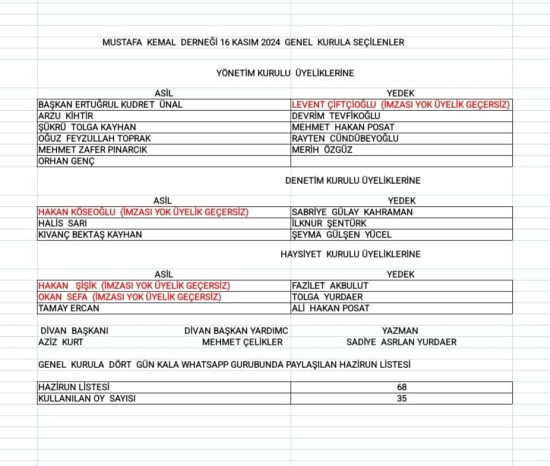 MUSTAFA KEMAL DERNEĞİ 16 KASIM 2024 GENEL KURULA SEÇİLENLER
YÖNETİM KURULU ÜYELİKLERİNE
ASİL YEDEK
BAŞKAN ERTUĞRUL KUDRET ÜNAL LEVENT ÇİFTÇİOĞLU (İMZASI YOK ÜYELİK GEÇERSİZ)
ARZU KİHTİR DEVRİM TEVFİKOĞLU
ŞÜKRÜ TOLGA KAYHAN MEHMET HAKAN POSAT
OĞUZ FEYZULLAH TOPRAK RAYTEN CÜNDÜBEYOĞLU
MEHMET ZAFER PINARCIK MERİH ÖZGÜZ
ORHAN GENÇ
DENETİM KURULU ÜYELİKLERİNE
ASİL YEDEK
HAKAN KÖSEOĞLU (İMZASI YOK ÜYELİK GEÇERSİZ) SABRİYE GÜLAY KAHRAMAN
HALİS SARI İLKNUR ŞENTÜRK
KIVANÇ BEKTAŞ KAYHAN ŞEYMA GÜLŞEN YÜCEL
HAYSİYET KURULU ÜYELİKLERİNE
ASİL YEDEK
HAKAN ŞIŞIK (İMZASI YOK ÜYELİK GEÇERSİZ) FAZİLET AKBULUT
OKAN SEFA (İMZASI YOK ÜYELİK GEÇERSİZ) TOLGA YURDAER
TAMAY ERCAN ALİ HAKAN POSAT
DİVAN BAŞKANI DİVAN BAŞKAN YARDIMC YAZMAN
AZİZ KURT MEHMET ÇELİKLER SADİYE ASRLAN YURDAER
GENEL KURULA DÖRT GÜN KALA WHATSAPP GURUBUNDA PAYLAŞILAN HAZİRUN LİSTESİ
HAZİRUN LİSTESİ 68
KULLANILAN OY SAYISI 35